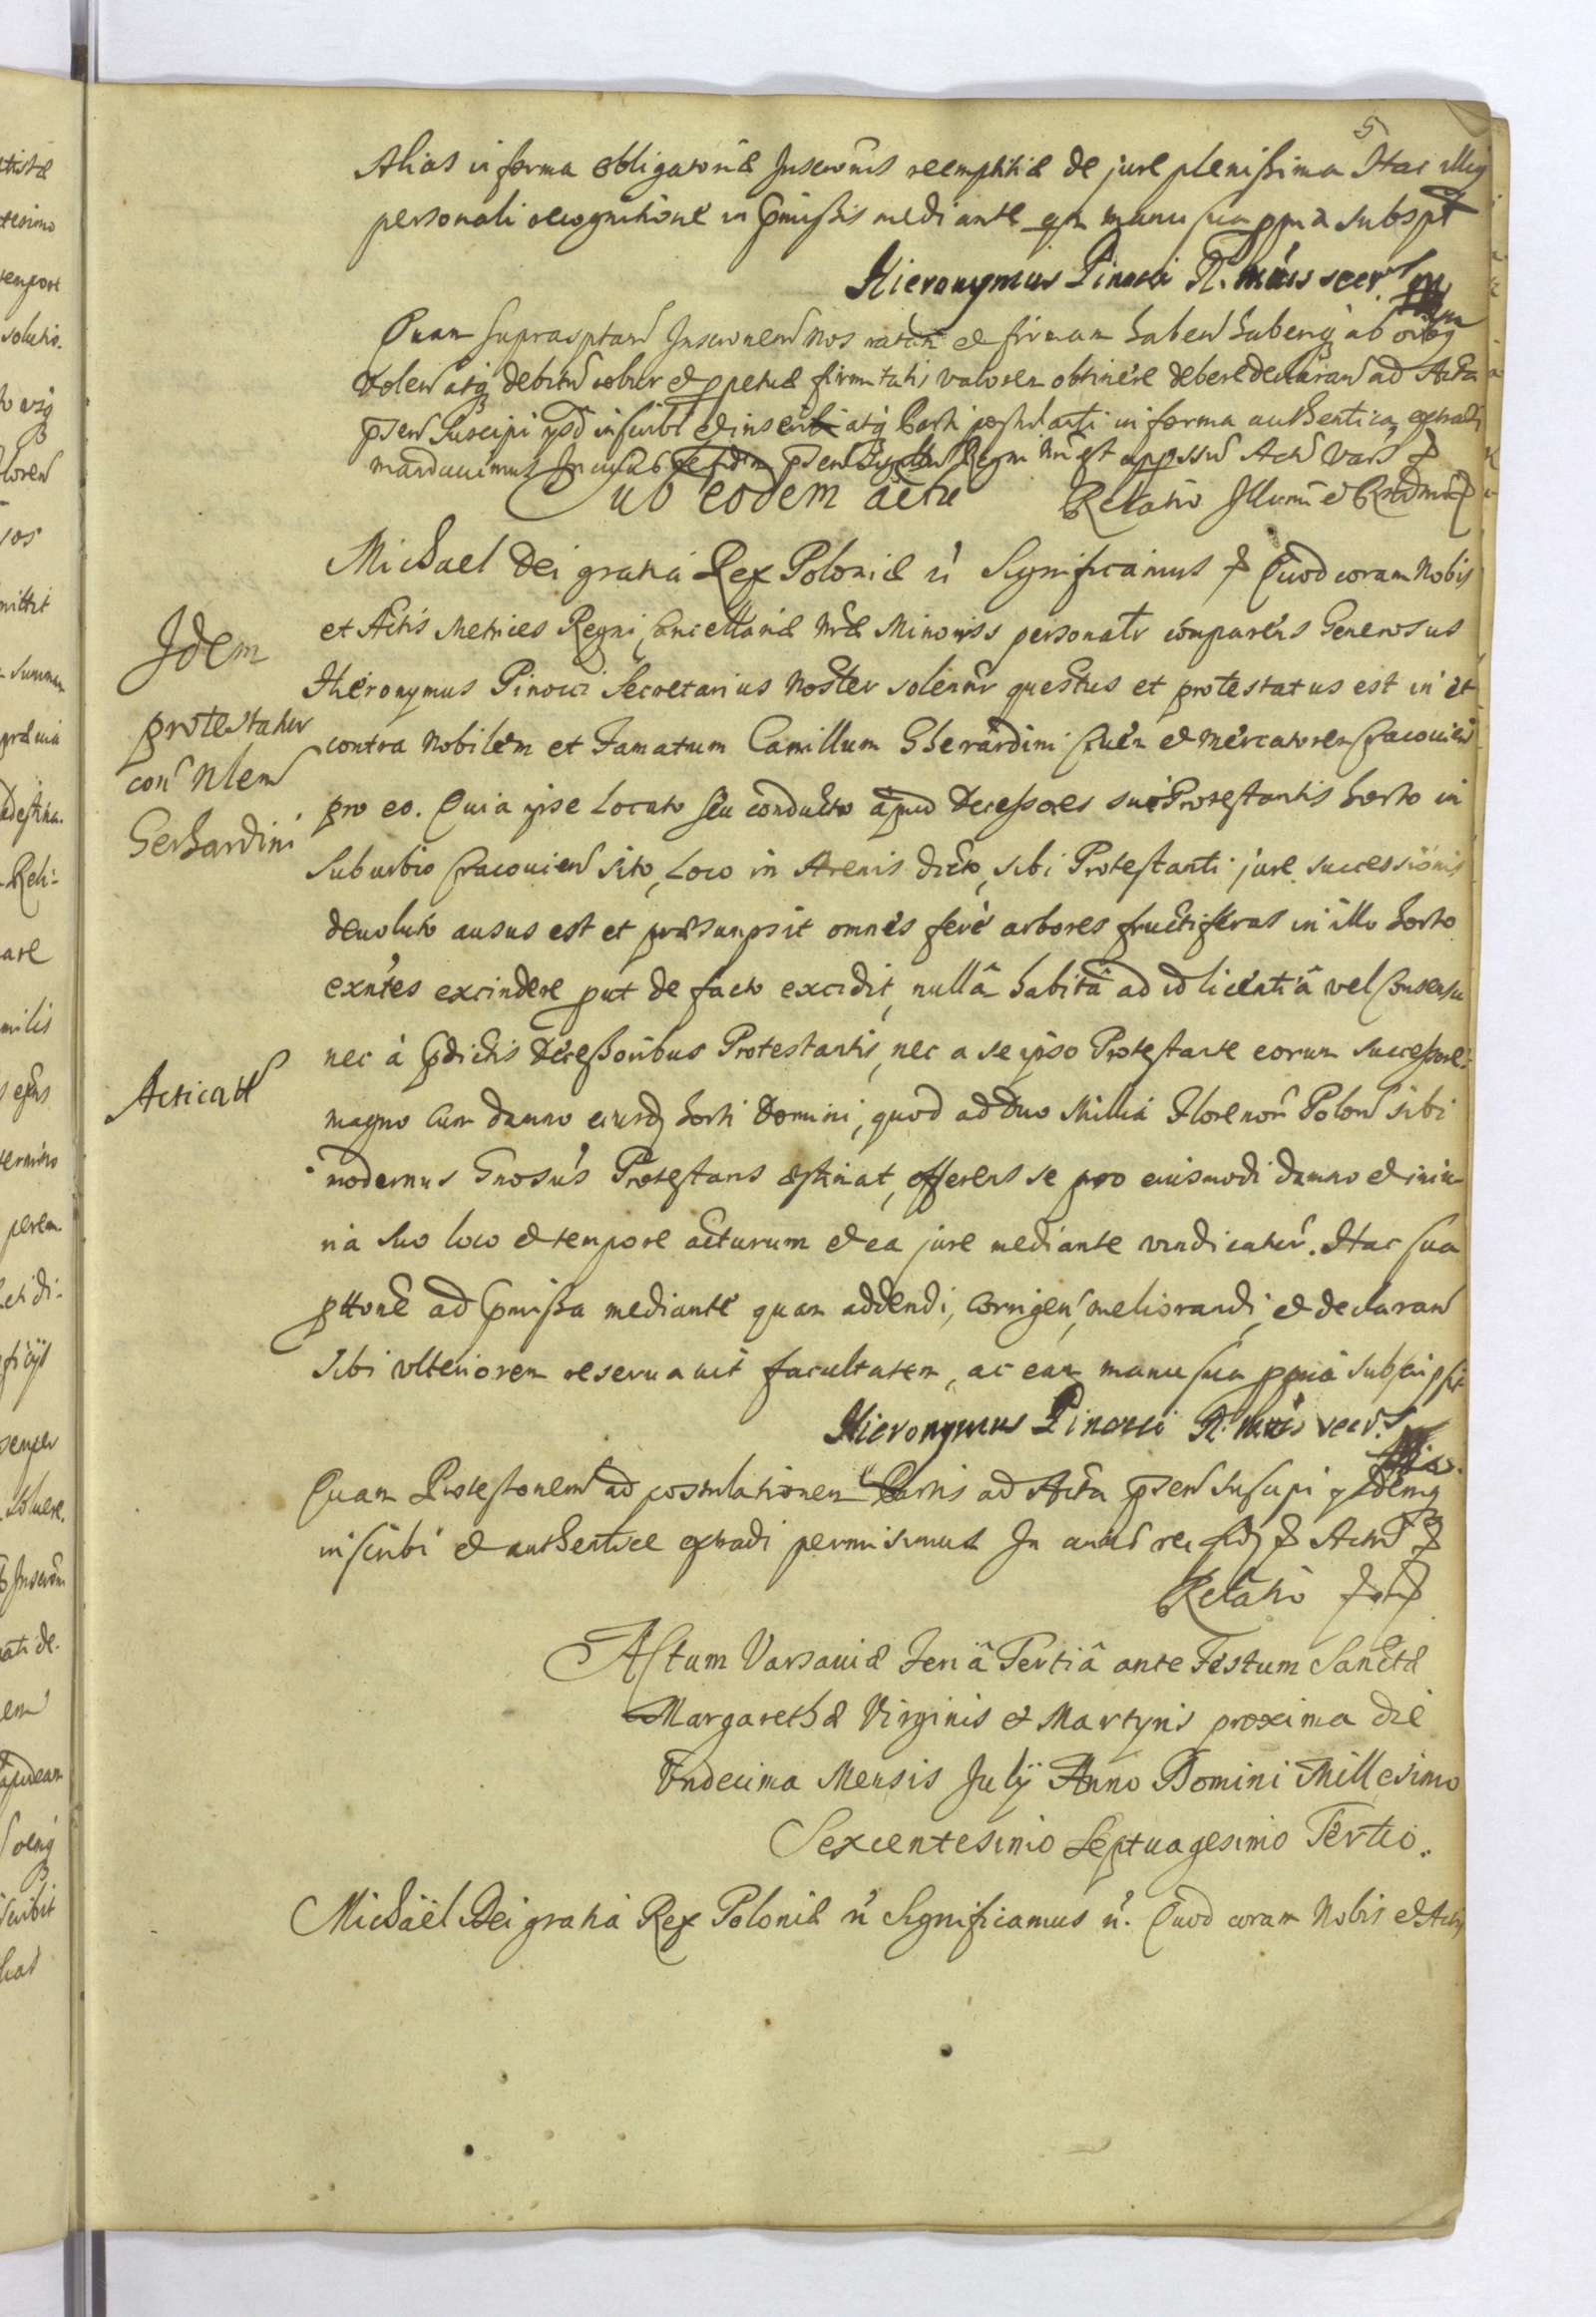 5
Alias in forma obligatoriæ Inscrõnis reemptitiæ de jure plenissima Hac illiq
personali recognitione in p̃missis mediante qm manu sua ppria subspt
Hieronymus Pinocci R. mtis secr.
Quam suprascptam Inscronem nos ratam et firmam haben habemq ab oibq
volen atq debitu robur et perpetuæ firmitatis valorem obtinere debere declaran ad Acta
psen suscipi ysd inscribi et inseri atq Parti postulanti in forma authentica extradi
mandavimus In cujus rei fidem psen Sigillu Regni nri est appssu Actu Vars
Sub eodem actu Relatio Illumi et Rndmi
Michael Dei gratia Rex Poloniæ ɛ̃ Significamus Quod coram Nobis
et Actis Metrices Regni Cancellariæ nræ Minoris personalr comparens Generosus
Hieronymus Pinocci Secretarius Noster solennr questus et protestatus est in et
contra Nobilem et Famatum Camillum Gherardini Cuem et Mercatorem Cracouien
pro eo. Quia ipse Locato seu conducto apud Decessores sui Protestantis horto in
suburbio Cracouien sito, Loco in Arenis dicto, sibi Protestanti jure successionis
deuoluto ausus est et præsumpsit omnes ferè arbores fructiferas in illo horto
exntes excindere put de facto excidit, nullâ habitâ ad id licentiâ vel Consensu
nec à p̃dictis Decessoribus Protestantis, nec a se ipso Protestante eorum successore:
magno cum damno eiusdq horti Domini, quod ad Duo Millia Florenor Polon sibi
modernus Gnosus Protestans æstimat, offerens se pro eiusmodi damno et iniu-
ria suo loco et tempore acturum et ea jure mediante vindicatur. Hac sua
pttone ad p̃missa mediante quam addendi, corrigen, meliorandi, et declaran
sibi ulteriorem reseruauit facultatem, ac eam manu sua ppria subscripsit
Hieronymus Pinocci R. mtis secr.
Quam Protestonem ad postulationem Partis ad Acta psen suscipi ysdemq
inscribi et authentice extradi permisimus In cuius rei fidq Actu
Relatio
Actum Varsauiæ Feriâ Tertiâ ante Festum Sanctæ
Margarethæ Virginis et Martyris proxima die
Undecima Mensis Julij Anno Domini Millesimo
Sexcentesimo Septuagesimo Tertio.
Michaël Dei gratia Rex Poloniæ ɛ̃ Significamus ɛ̃. Quod coram Nobis et Actis
Idem
protestatur
con Nlem
Gerhardini
Acticatt